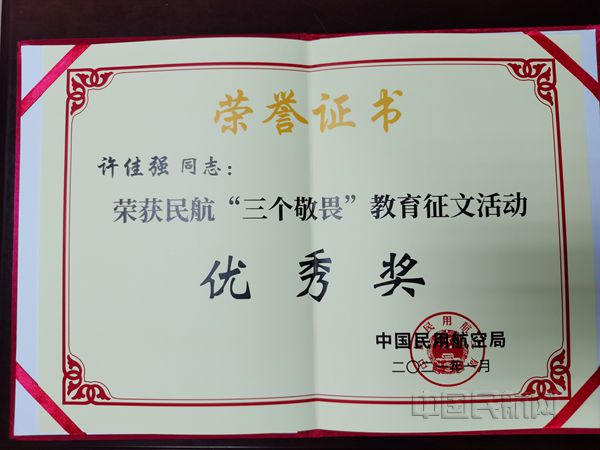 荣誉证书
许佳强 同志：
荣获民航“三个敬畏”教育征文活动
优秀奖
中国民用航空局
中国民航网